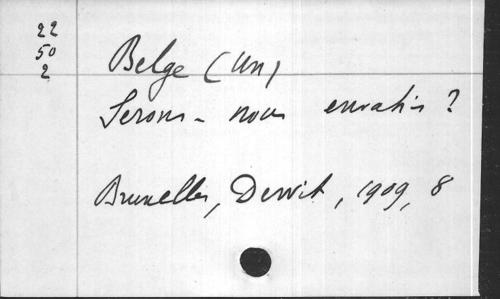 22
50
2
Belge (Un)
Serons-nous envahis ?
Bruxelles, Dewit, 1909, 8